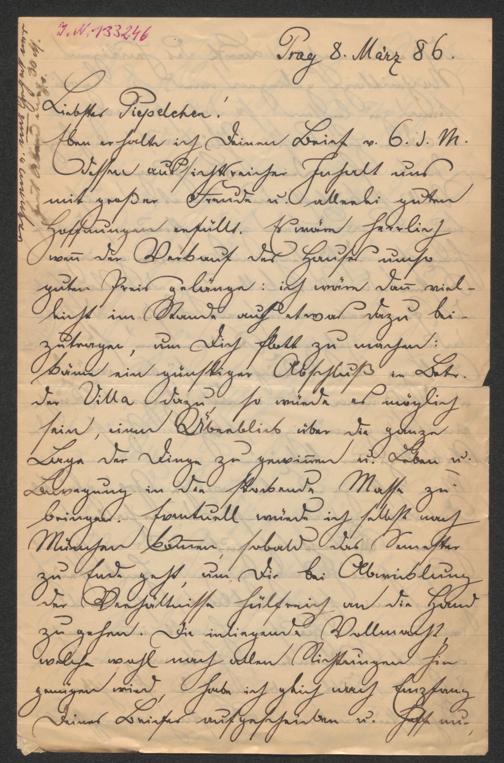 J.N. 133246
Prag 8. März 86.
Liebstes Piepselchen!
Eben erhalte ich Deinen Brief v. 6. d. M.
dessen aussichtsreicher Inhalt uns
mit großer Freude u. allerlei guten
Hoffnungen erfüllt. Es wäre herrlich
wen̄ der Verkauf des Hauses umso
guten Preis gelänge: ich wäre dan̄ viel-
leicht im Stande auch etwas dazu bei-
zutragen, um Dich flott zu machen:
käme ein günstiger Abschluß in Betr.
der Villa dazu, so würde es möglich
sein, einen Überblick über die ganze
Lage der Dinge zu gewin̄en u. Leben u.
Bewegung in die stockende Masse zu
bringen. Eventuell würde ich selbst nach
München kom̄en, sobald das Semester
zu Ende geht, um Dir bei Abwicklung
der Verhältnisse hülfreich an die Hand
zu gehen. Die inliegende Vollmacht,
welche wohl nach allen Richtungen hin
genügen wird, habe ich gleich nach Empfang
Deines Briefes aufgeschrieben u. hoffe nur,